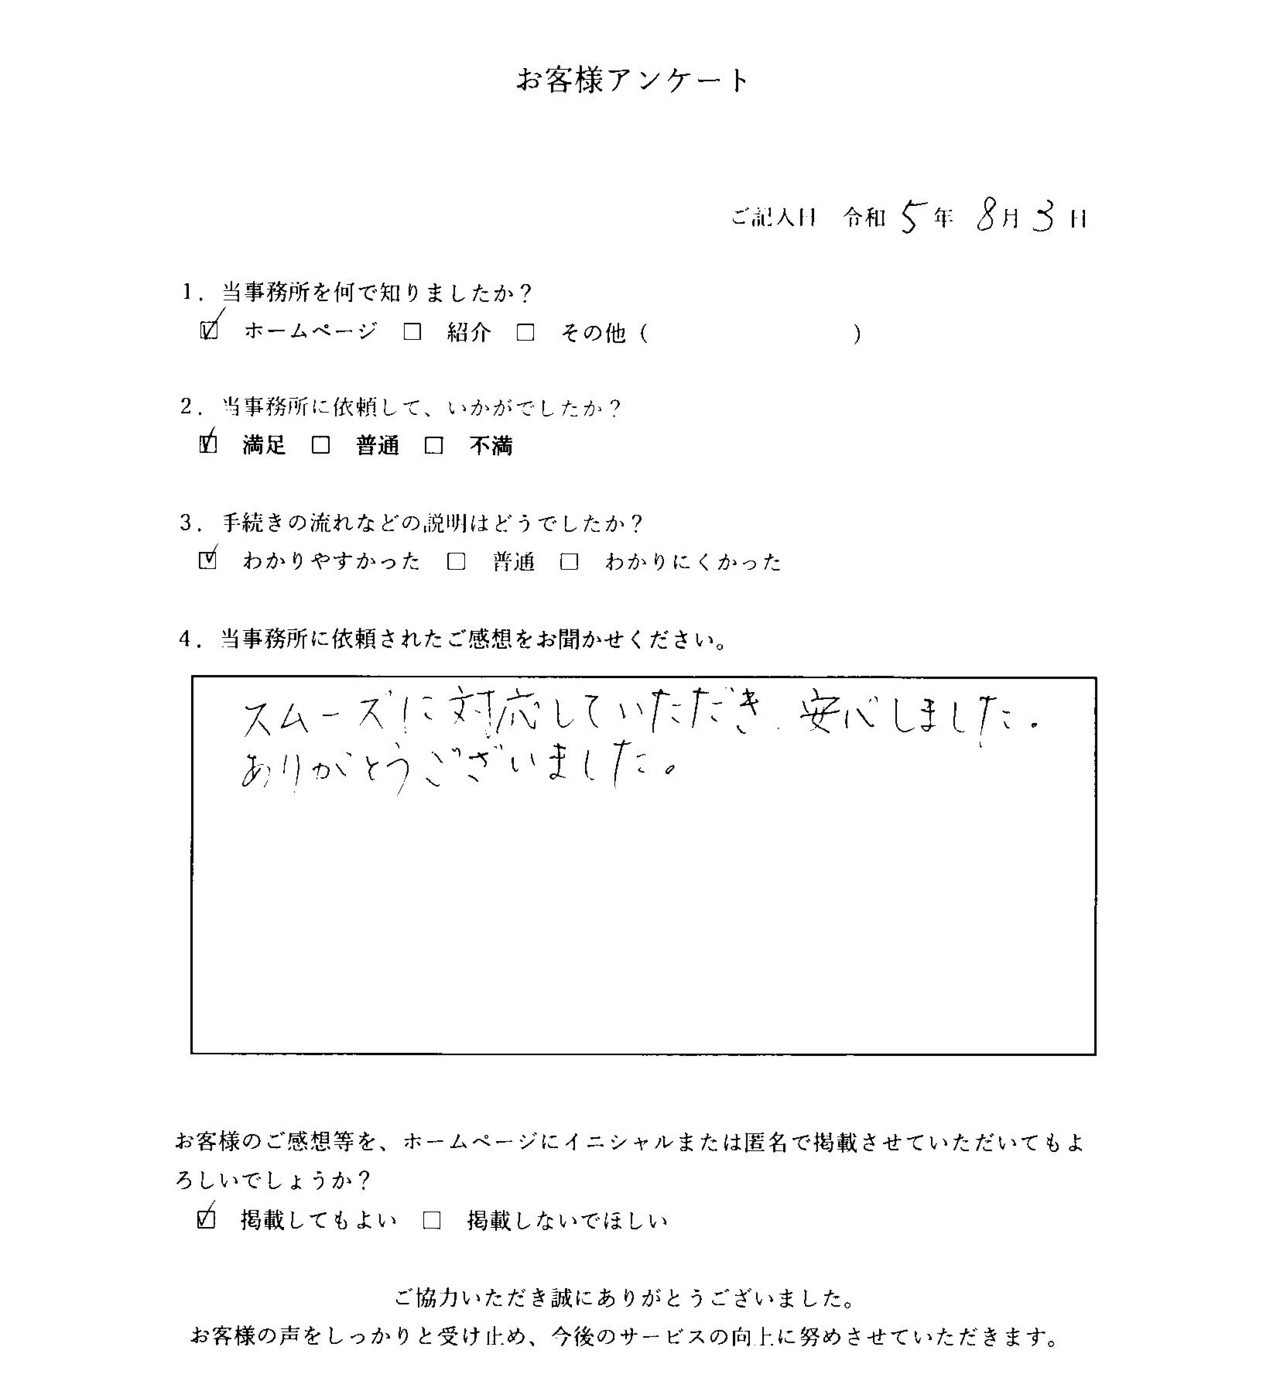 お客様アンケート
ご記入日 令和5年 8月3日
1．当事務所を何で知りましたか？
☑ ホームページ □ 紹介 □ その他（ ）
2．当事務所に依頼して、いかがでしたか？
☑ 満足 □ 普通 □ 不満
3．手続きの流れなどの説明はどうでしたか？
☑ わかりやすかった □ 普通 □ わかりにくかった
4．当事務所に依頼されたご感想をお聞かせください。
スムーズに対応していただき、安心しました。
ありがとうございました。
お客様のご感想等を、ホームページにイニシャルまたは匿名で掲載させていただいてもよ
ろしいでしょうか？
☑ 掲載してもよい □ 掲載しないでほしい
ご協力いただき誠にありがとうございました。
お客様の声をしっかりと受け止め、今後のサービスの向上に努めさせていただきます。